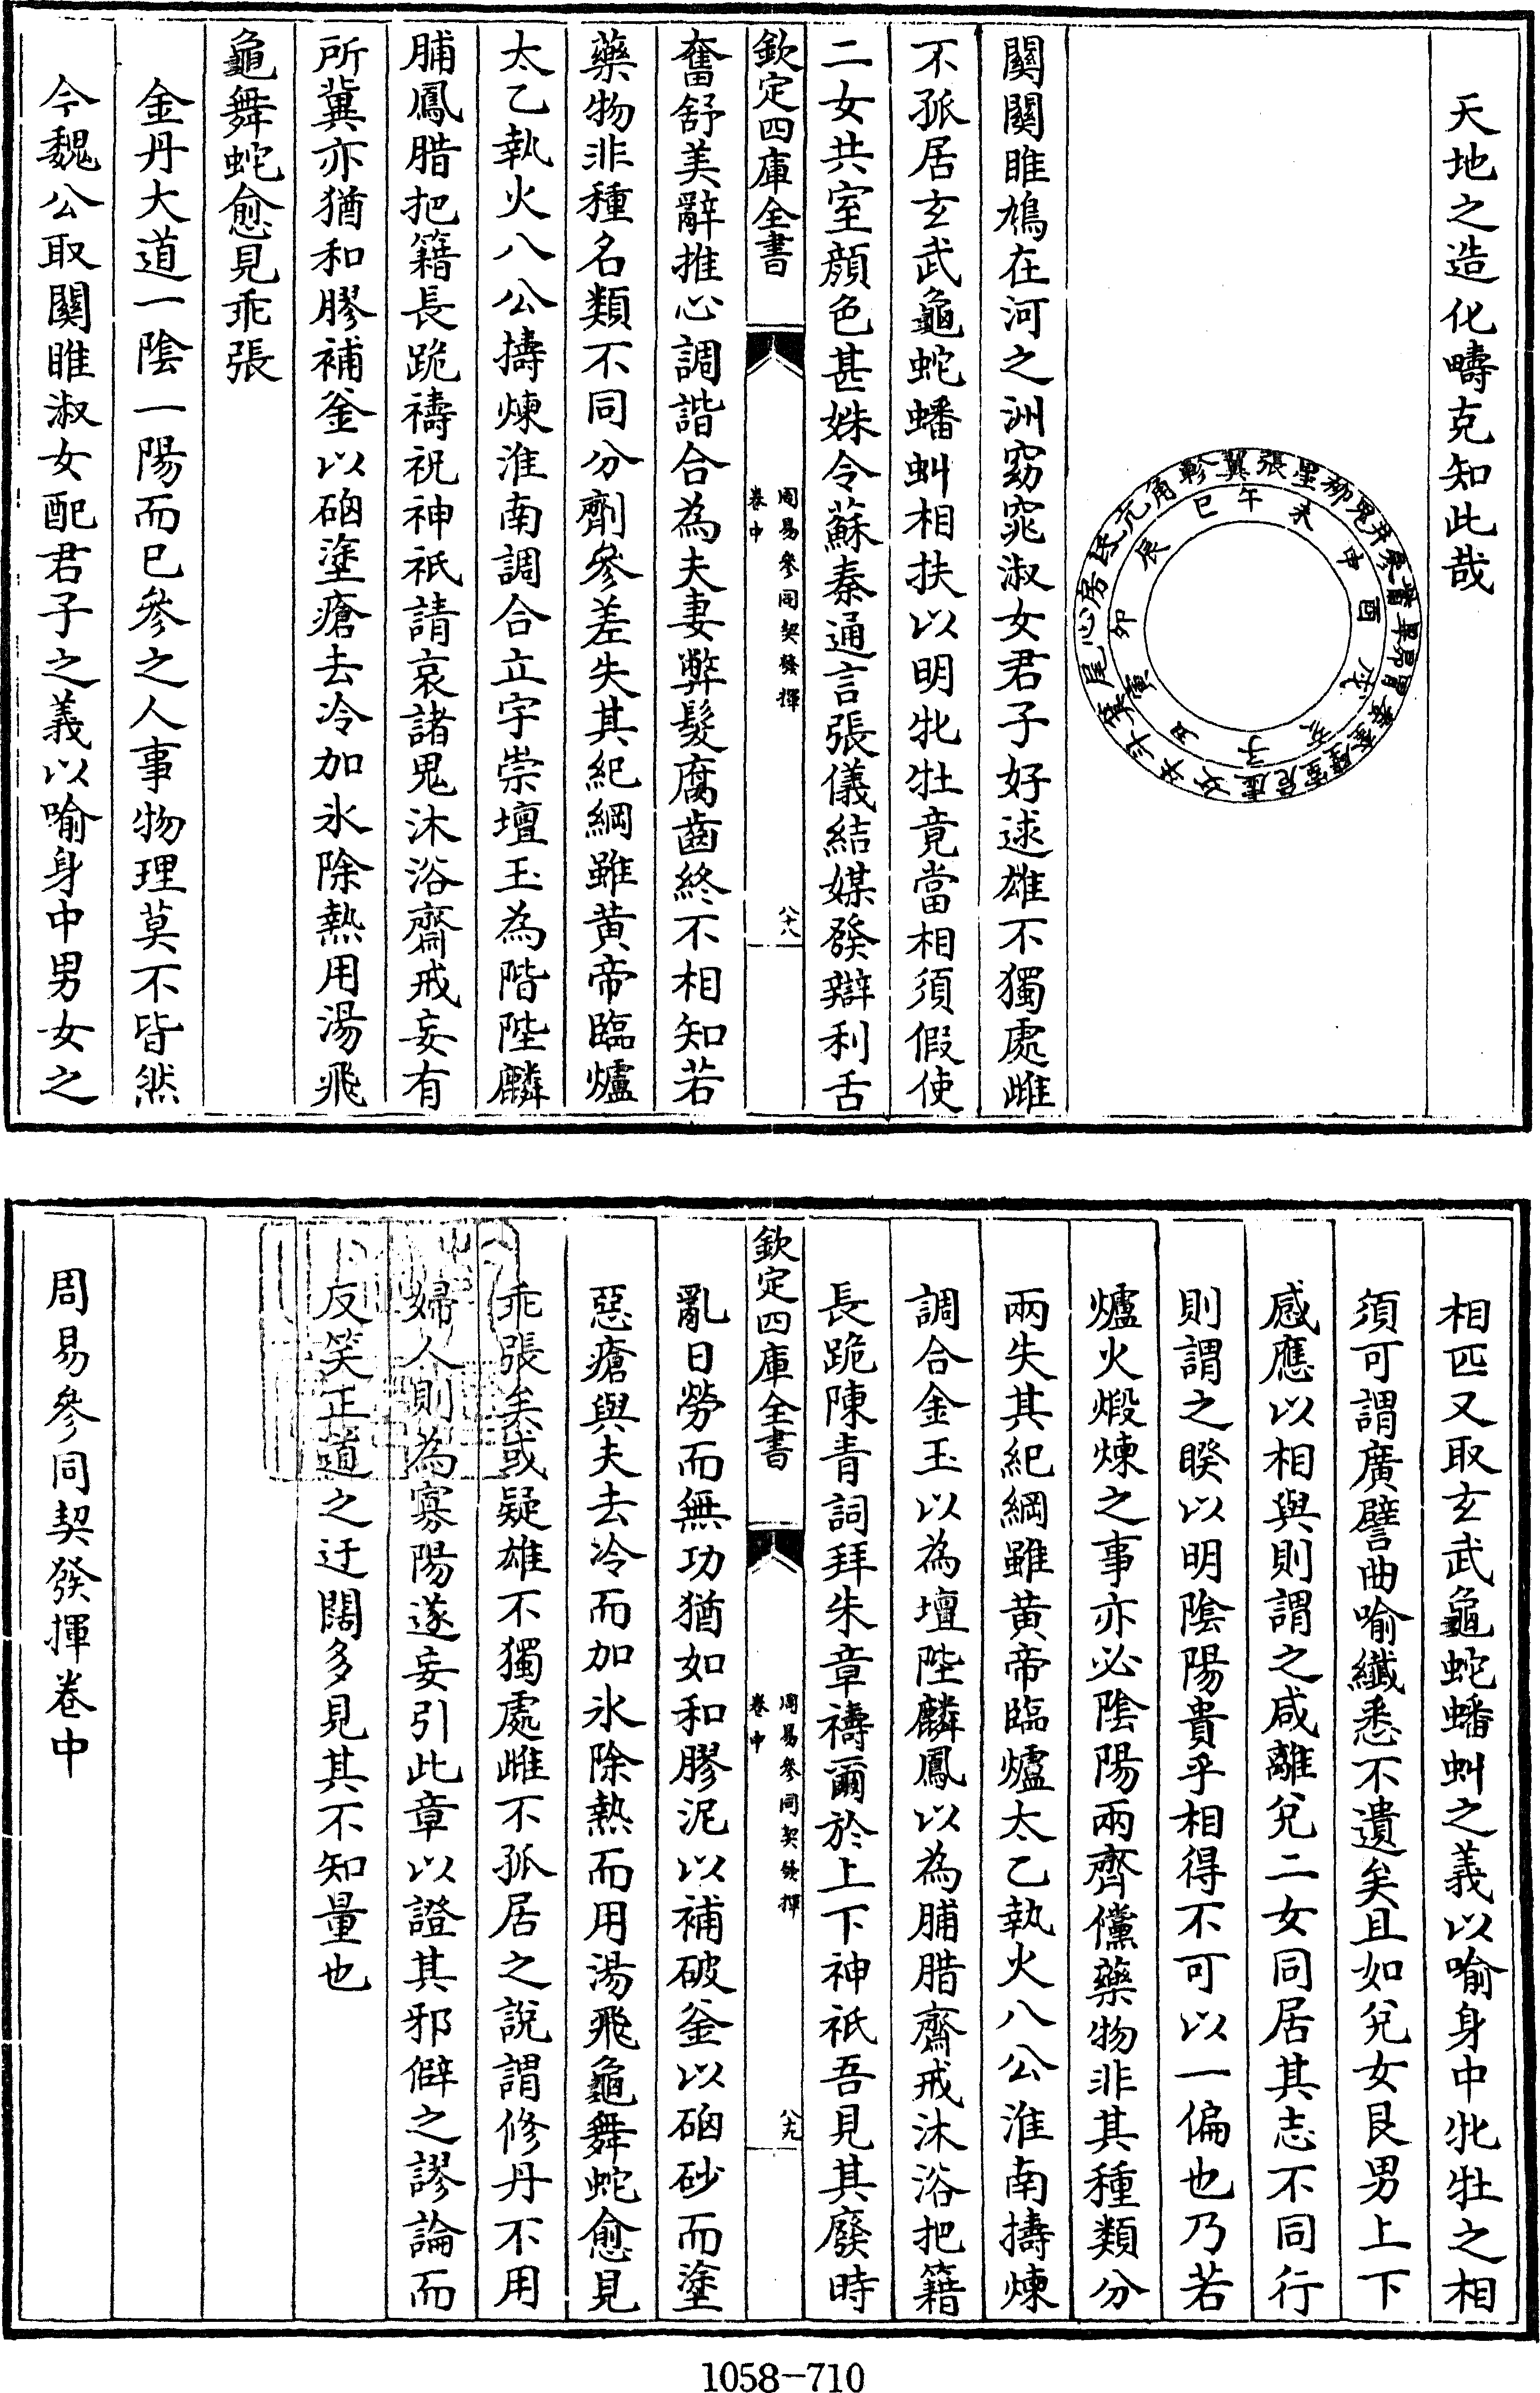 天地之造化疇克知此哉
角亢氐房心尾箕斗牛女虛危室壁奎婁胃昴畢觜參井鬼柳星張翼軫
子丑寅卯辰巳午未申酉戌亥
關關雎鳩在河之洲窈窕淑女君子好逑雄不獨處雌
不孤居玄武龜蛇蟠虯相扶以明牝牡竟當相須假使
二女共室顏色甚姝令蘇秦通言張儀結媒發辯利舌
欽定四庫全書
周易參同契發揮
卷中
八十八
奮舒美辭推心調諧合為夫妻弊髮腐齒終不相知若
藥物非種名類不同分劑參差失其紀綱雖黄帝臨爐
太乙執火八公擣煉淮南調合立宇崇壇玉為階陛麟
脯鳳腊把籍長跪禱祝神祇請哀諸鬼沐浴齋戒妄有
所冀亦猶和膠補釜以硇塗瘡去冷加氷除熱用湯飛
龜舞蛇愈見乖張
金丹大道一陰一陽而已參之人事物理莫不皆然
今魏公取關雎淑女配君子之義以喻身中男女之
相匹又取玄武龜蛇蟠虯之義以喻身中牝牡之相
須可謂廣譬曲喻纖悉不遺矣且如兌女艮男上下
感應以相與則謂之咸離兌二女同居其志不同行
則謂之睽以明陰陽貴乎相得不可以一偏也乃若
爐火煅煉之事亦必陰陽兩齊儻藥物非其種類分
兩失其紀綱雖黄帝臨爐太乙執火八公淮南擣煉
調合金玉以為壇陛麟鳳以為脯腊齋戒沐浴把籍
長跪陳青詞拜朱章禱爾於上下神祇吾見其廢時
欽定四庫全書
周易參同契發揮
卷中
八十九
亂日勞而無功猶如和膠泥以補破釜以硇砂而塗
惡瘡與夫去冷而加氷除熱而用湯飛龜舞蛇愈見
乖張矣或疑雄不獨處雌不孤居之說謂修丹不用
婦人則為寡陽遂妄引此章以證其邪僻之謬論而
反笑正道之迂闊多見其不知量也
周易參同契發揮卷中
1058-710